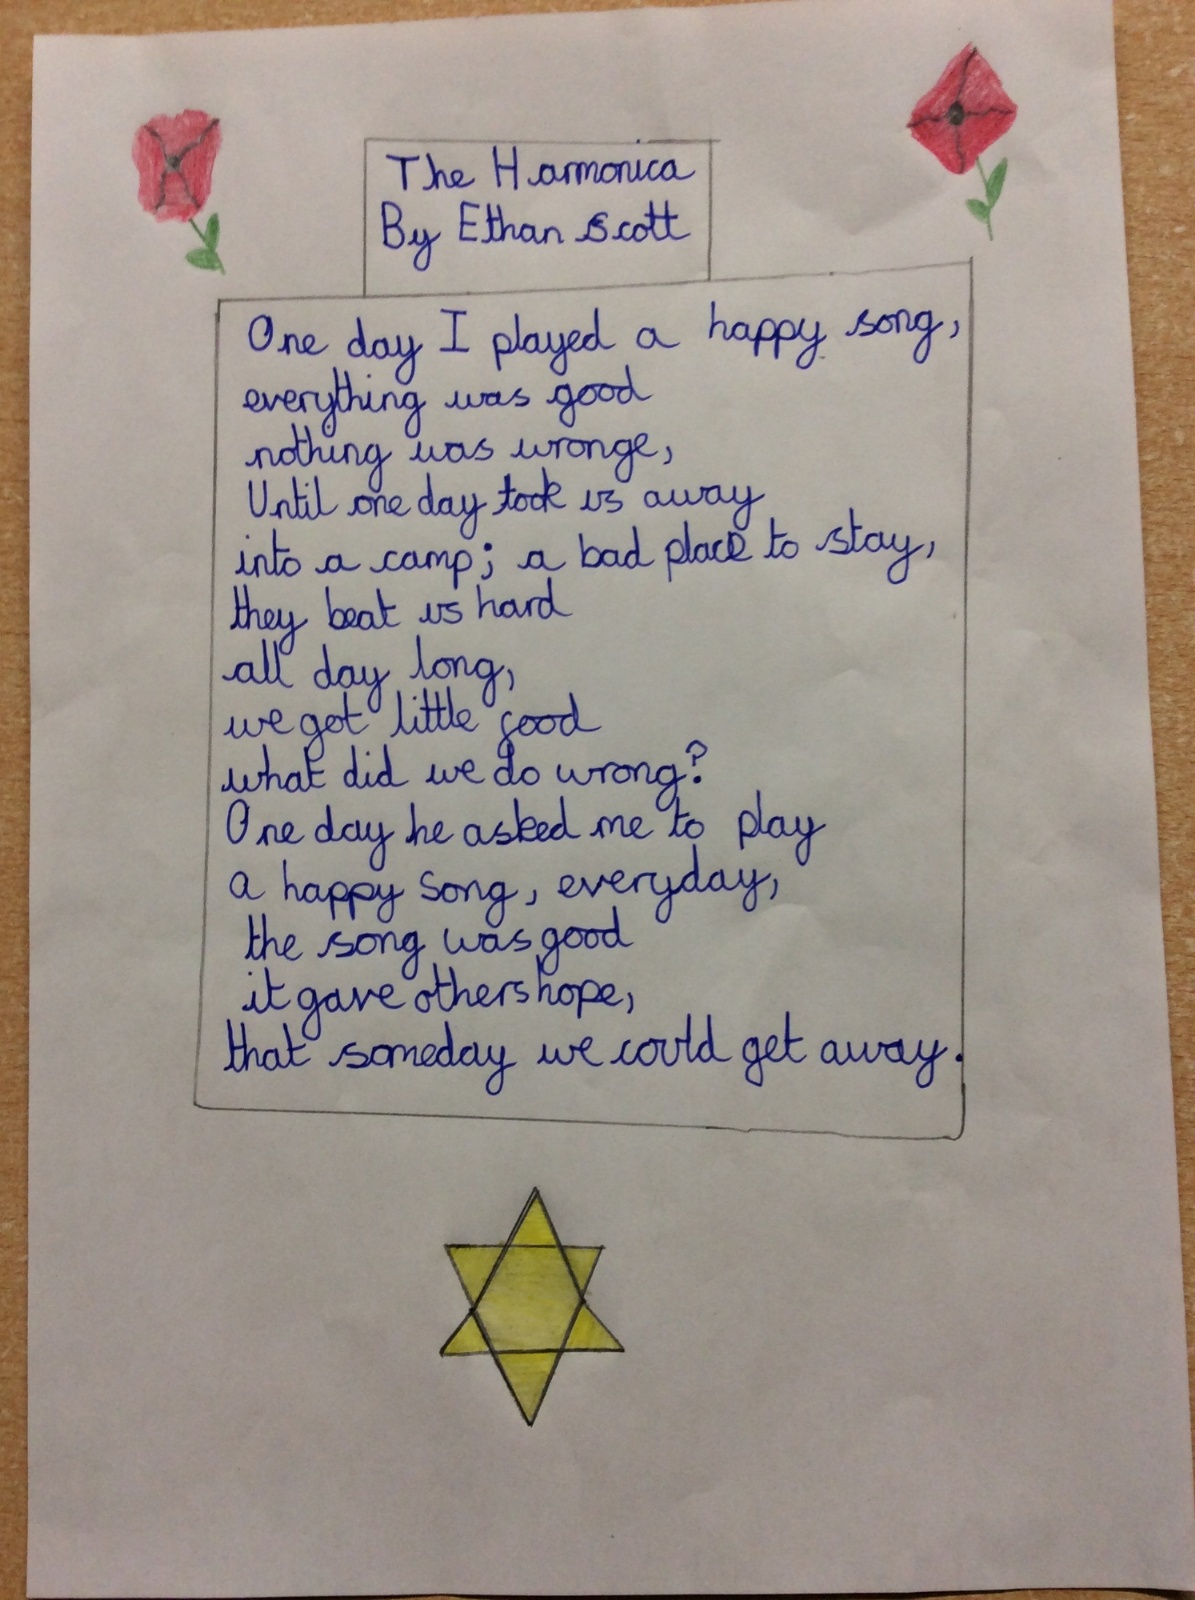 The Harmonica
By Ethan Scott
One day I played a happy song,
everything was good
nothing was wronge,
Until one day took us away
into a camp; a bad place to stay,
they beat us hard
all day long,
we got little food
what did we do wrong?
One day he asked me to play
a happy song, everyday,
the song was good
it gave others hope,
that someday we could get away.